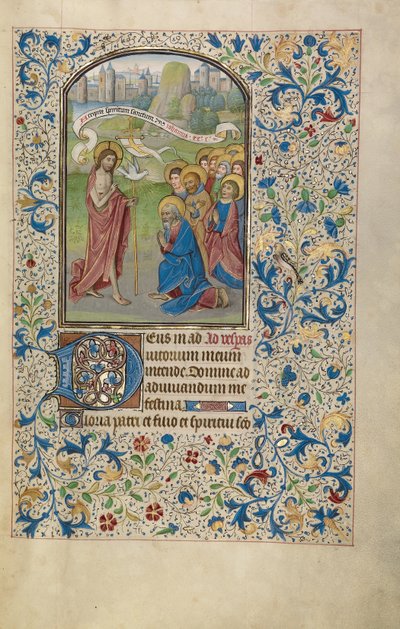 Accipite spiritum sanctum
Deus in ad Ad vesperas
iutorium meum
intende. Domine ad
adiuvandum me
festina
Gloria patri et filio et spiritui sco